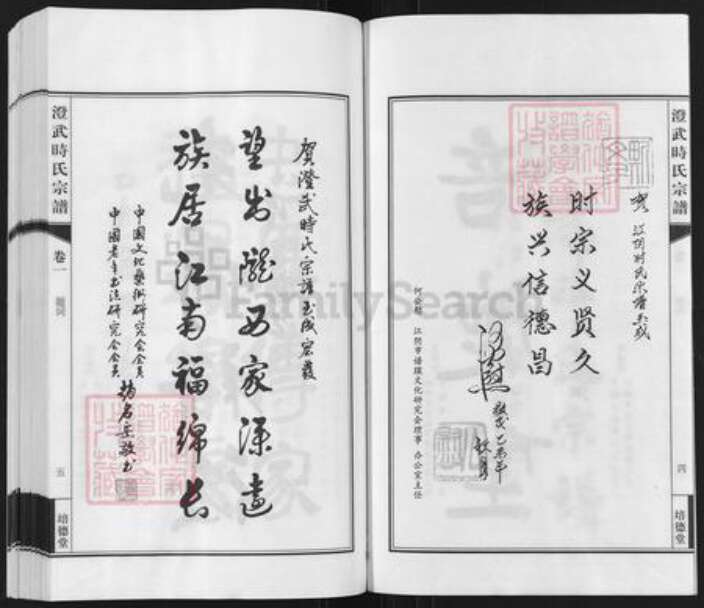 澄武時氏宗譜
四
培德堂
贺江阴时氏宗谱玉成
时宗义贤久
族兴信德昌
江阴市谱牒文化研究会理事 办公室主任
敬贺
乙未年
秋月
澄武時氏宗譜
卷一
題詞
五
培德堂
賀澄武時氏宗譜玉成宏發
望出隴西家澤遠
族居江南福綿長
中國文化藝術研究會會員
中國老年书法研究会会员
敬书
FamilySearch